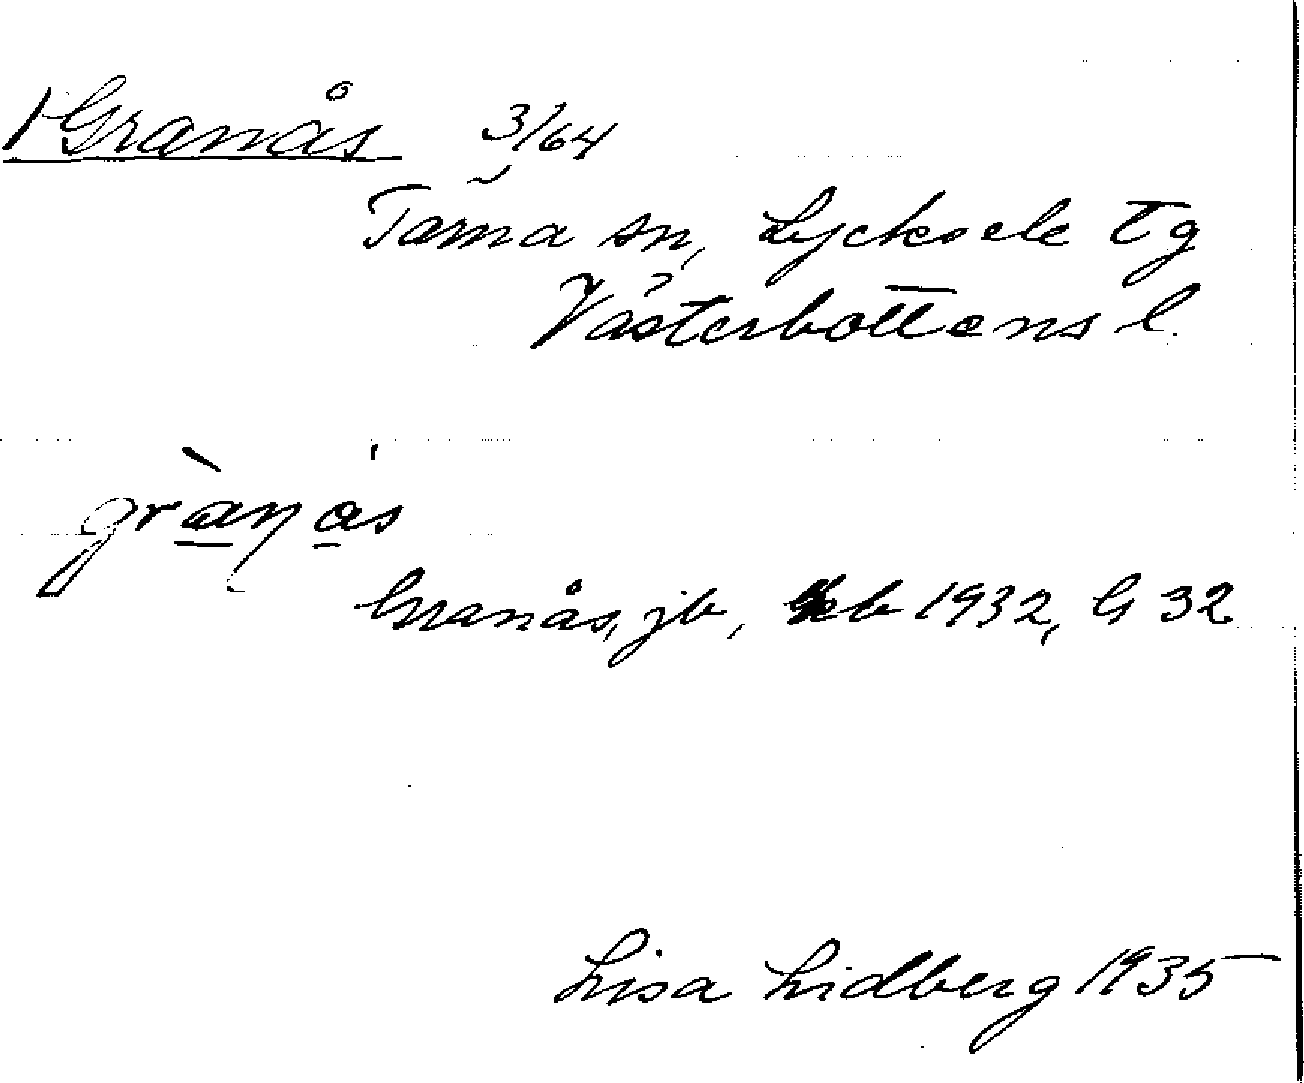 Granås 3/64
Tärna sn, Lycksele tg
Västerbottens l.
grànås
Granås, jb, kb 1932, G 32
Lisa Lidberg 1935